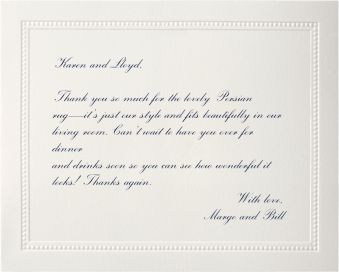 Karen and Lloyd,
Thank you so much for the lovely Persian
rug—it's just our style and fits beautifully in our
living room. Can't wait to have you over for
dinner
and drinks soon so you can see how wonderful it
looks! Thanks again.
With love,
Margo and Bill